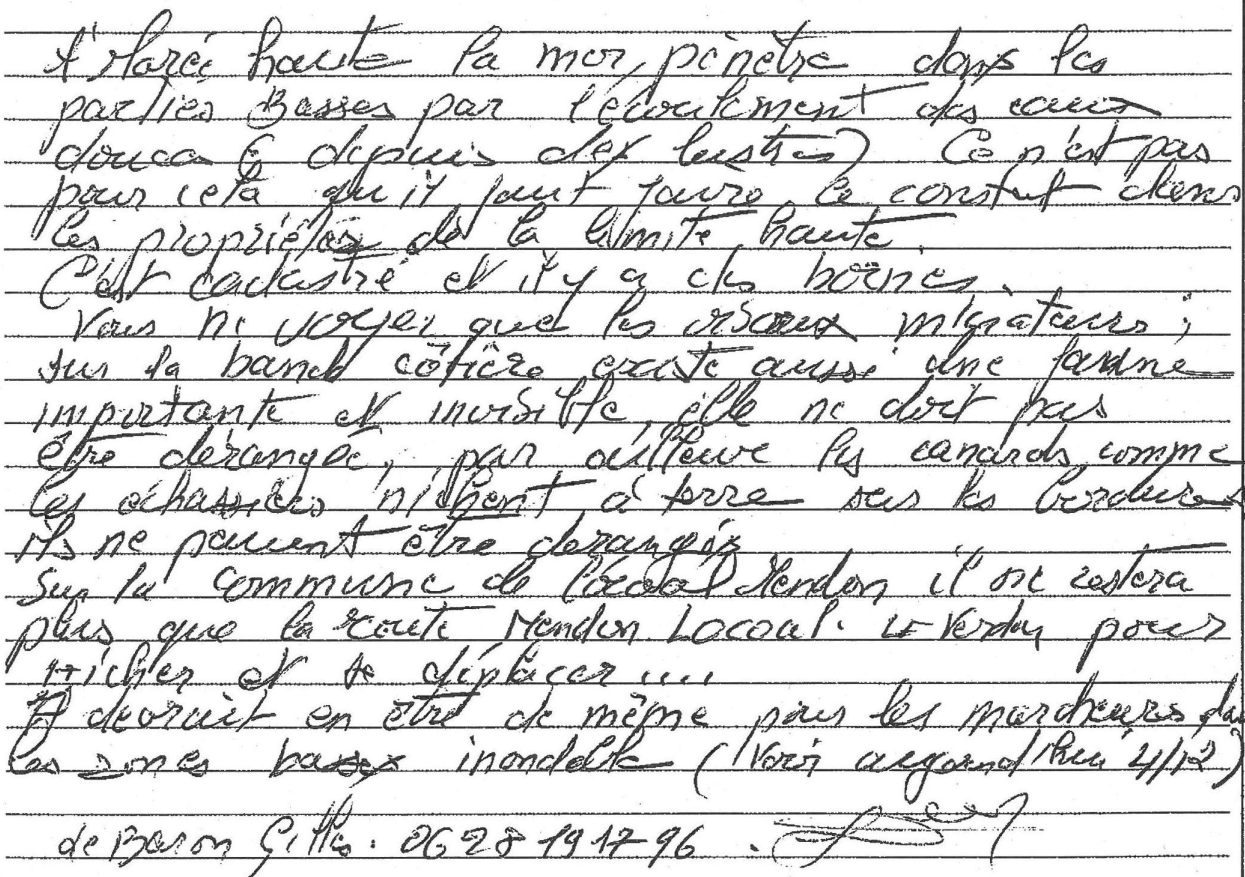 A Marée haute la mer, pénètre dans les
parties Basses par l'écoulement des eaux
douces (depuis des lustres) Ce n'est pas
pour cela qu'il faut faire le constat dans
les propriétés de la limite haute.
C'est cadastré et il y a des bornes.
Vous ne voyez que les oiseaux migrateurs ;
sur la bande côtière existe aussi une faune
importante et invisible, elle ne doit pas
être dérangée, par ailleurs les canards comme
les échassiers nichent à terre sur les bordures
ils ne peuvent être dérangés
Sur la commune de Locoal Mendon il ne restera
plus que la route Mendon Locoal. Le Verdon pour
nicher et se déplacer ....
Il devrait en être de même pour les marcheurs dans
les zones basses inondable (Voir aujourd'hui 4/12)
de Baron Gilles. 06 28 19 17 96 .